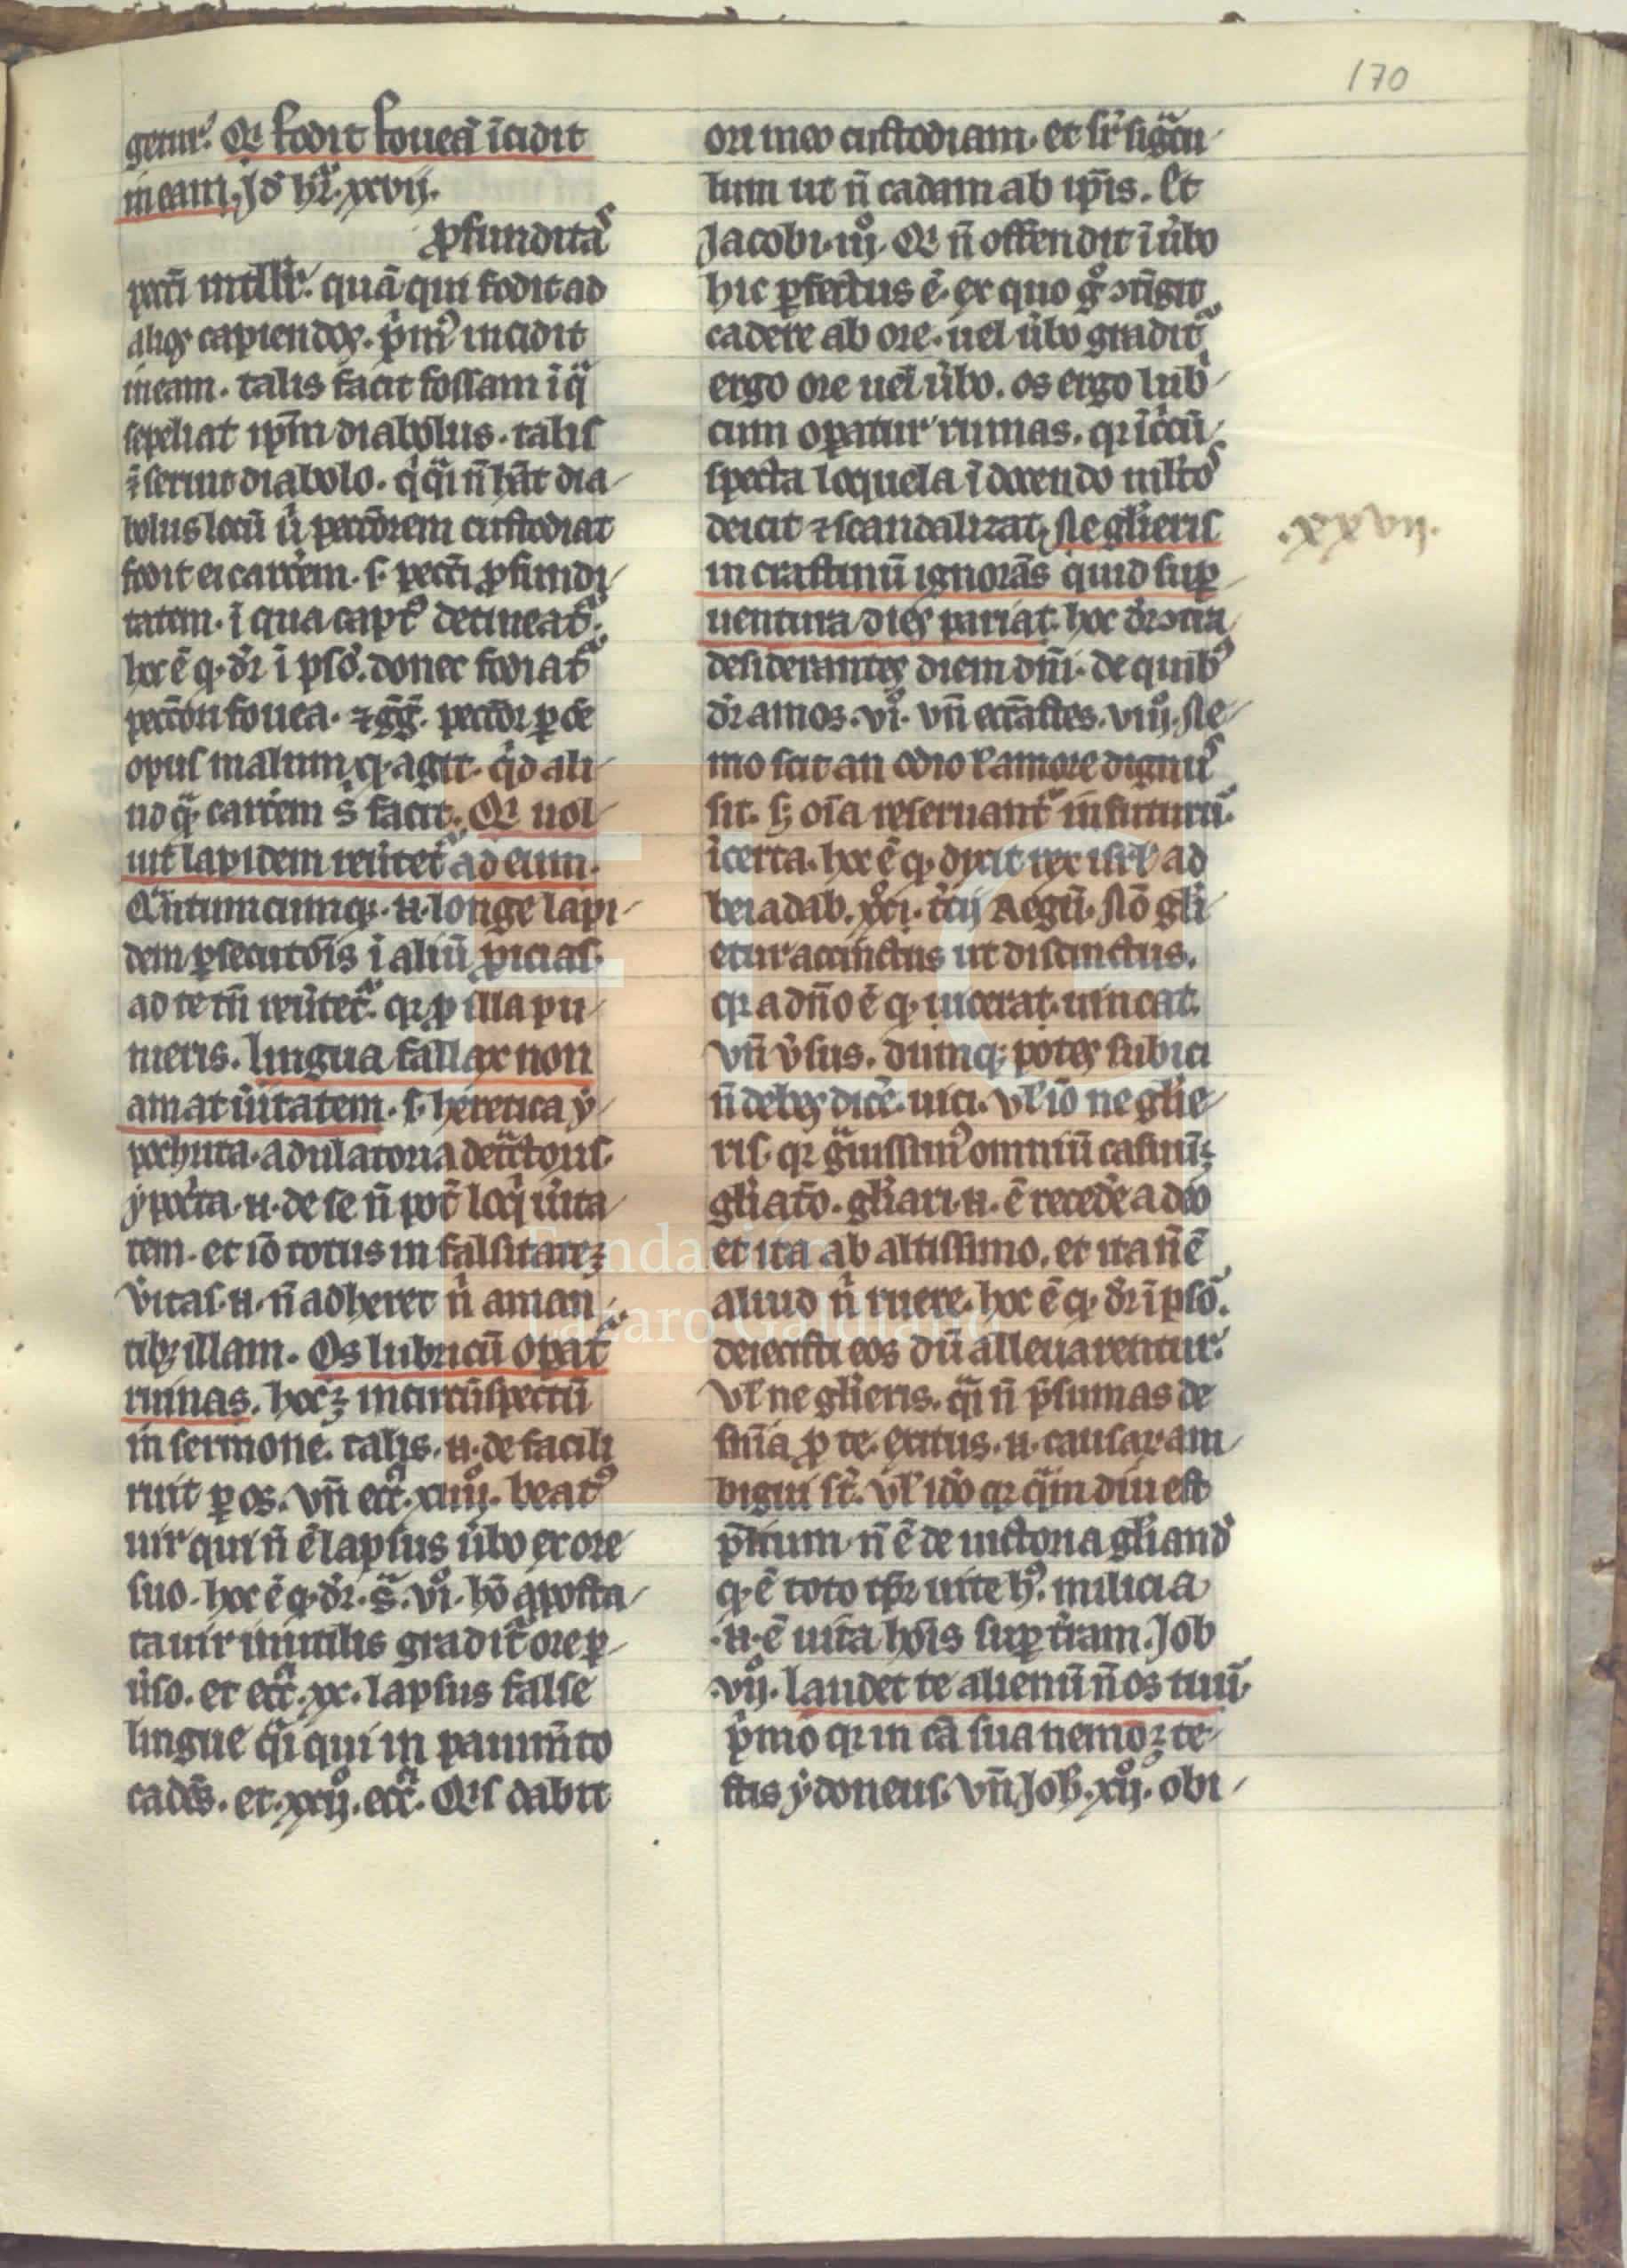 170
getur. Qi fodit foueā īcidit
in eam. Jđ hr̄. xxvij.
ꝓfundita
pctī intellr̄. quā qui fodit ad
alios capiendos. pͥmꝰ incidit
in eam. talis facit fossam ī qͣ
sepeliat ip̄m diabolus. talis
ī seruit diabolo. n̄ hāt dia-
bolus locū ū peccōrem custodiat
fodit ei carcēm. s. pctī ꝓfundi-
tatem. ī qua captꝰ detineat̄.
hoc ē qꝫ dr̄ ī psͦ. donec fodiat̄
peccōri fouea. ⁊ gḡ. peccōr ꝑ oē
opus malum qꝫ agit. qͥd ali-
ud qͣ carcēm s̄ facit. Qi uol-
uit lapidem reūtet̄ ad eum.
Qͣntumcumqꝫ. n. longe lapi-
dem ꝑsecutōis ī aliū ꝓicias.
ad te tn̄ reūtet̄. qꝛ ꝓ illa pu-
nieris. lingua fallax non
amat ūitatem. s. heretica ẏ-
pochita. adulatoria detͣctoris.
ẏpocͥta. n. de se n̄ pot̄ loqͥ ūita-
tem. et iō totus in falsitateꝫ
ūitas. n. n̄ adheret n̄ aman-
tibꝫ illam. Os lubricū opat̄
ruinas. hoc ꝫ incircūspectū
in sermone. talis. n. de facili
ruit ꝑ os. vn̄ ecc̄. xiiijͦ. beatꝰ
uir qui n̄ ē lapsus ūbo ex ore
suo. hoc ē qꝫ dr̄. sͣ. viͦ. hō aposta-
ta uir inutilis gradit̄ ore ꝑ-
ūso. et ecc̄. xx. lapsus false
lingue qͣi qui in pauimēto
cadēs. et. xxijͦ. ecc̄. Qis dabit
ori meo custodiam. et sr̄ sigͣcu-
lum ut n̄ cadam ab ip̄is. Et
Jacobi. iijͦ. Qi n̄ offendit ī ūbo
hic ꝑfectus ē. ex quo gͦ ↄtīgit
cadere ab ore. uel ūbo gradit̄
ergo ore uel ūbo. os ergo lubͥ-
cum opatur ruinas. qꝛ īcͥcū-
specta loquela ī docendo mltōs
deicit ⁊ scandalizat. Ne gl̄ieris
in crastinū ignorās quid suꝑ-
uentura dies pariat. hoc dr̄ ↄtͣ
desiderantes diem dn̄i. de quibꝰ
dr̄ amos. vͦ. vn̄ ecc̄astes. viiijͦ. Ne-
mo scit an odio ł amore dignus
sit. sꝫ oīa reseruant̄ in futurū.
īcerta. hoc ē qꝫ dixit rex isrł ad
benadab. xxͦi. tc̄ij Regū. Nō gl̄i-
etur accinctus ut discinctus.
vn̄ ūsus. dumqꝫ potes subici
n̄ debes dicē. uici. vł iō ne gl̄ie-
ris. qꝛ gͣuissimꝰ omniū casuū ꝫ
gl̄iatō. gl̄iari. n. ē recedē a deo
et ita ab altissimo. et ita n̄ ē
aliud n̄ ruere. hoc ē qꝫ dr̄ ī psͦ.
deiecisti eos dū alleuarentur.
vł ne gl̄ieris. qͣi n̄ p̄sumas de
sn̄ia ꝓ te. exitus. n. causarꝫ am-
bigui st̄. vł idō qꝛ qͣmdiu est
p̄lium. n̄ ē de uictoria gl̄iand
qꝫ ē toto tp̄r uite hꝰ. milicia
.n. ē uita hōis suꝑ tr̄am. Job
.vijͦ. laudet te alienū n̄ os tuū.
pͥmo qꝛ in cā sua nemo ꝫ te-
stis ẏdoneus. vn̄ Job. xijͦ. obi-
.xxvij.
Fundación
Lázaro Galdiano